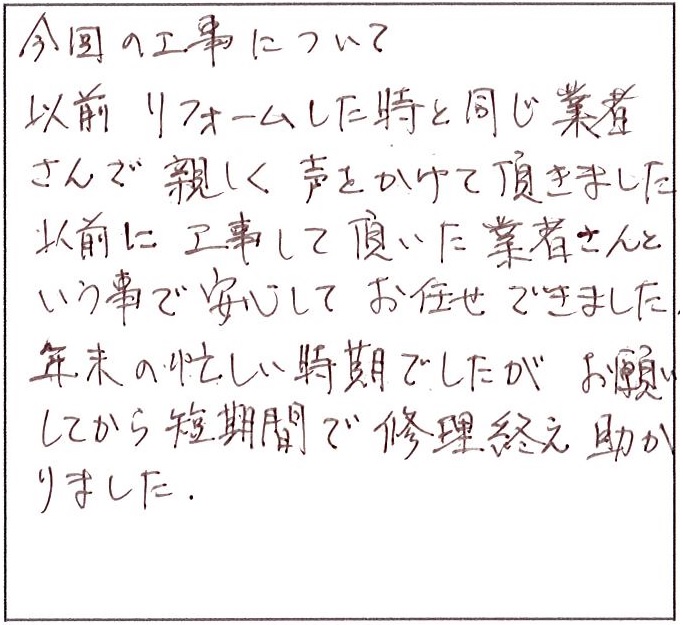 今回の工事について
以前 リフォームした時と同じ業者
さんで 親しく 声をかけて頂きました
以前に 工事して頂いた業者さんと
いう事で安心して お任せできました.
年末の忙しい時期でしたが お願い
してから短期間で修理終え 助か
りました.